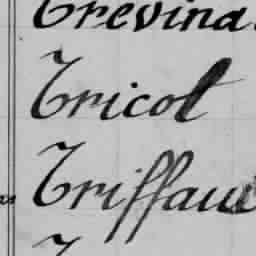 Trevina
Tricot
Triffau